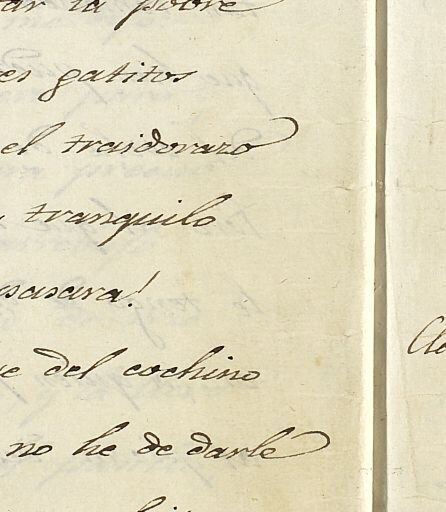 ar la pobre
es gatitos
el traidorazo
tranquilo
sasara!
e del cochino
no he de darle